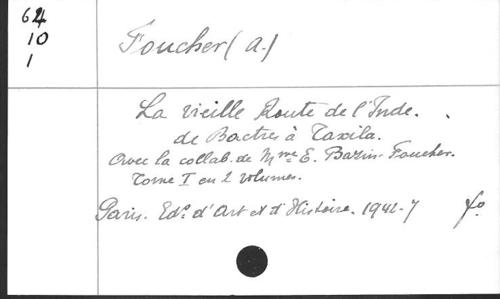 64
10
1
Foucher (A.)
La vieille Route de l'Inde.
de Bactres à Taxila.
Avec la collab. de Mme E. Bazin-Foucher.
Tome I en 2 volumes.
Paris. Edns d'Art et d'Histoire. 1942-7 fo